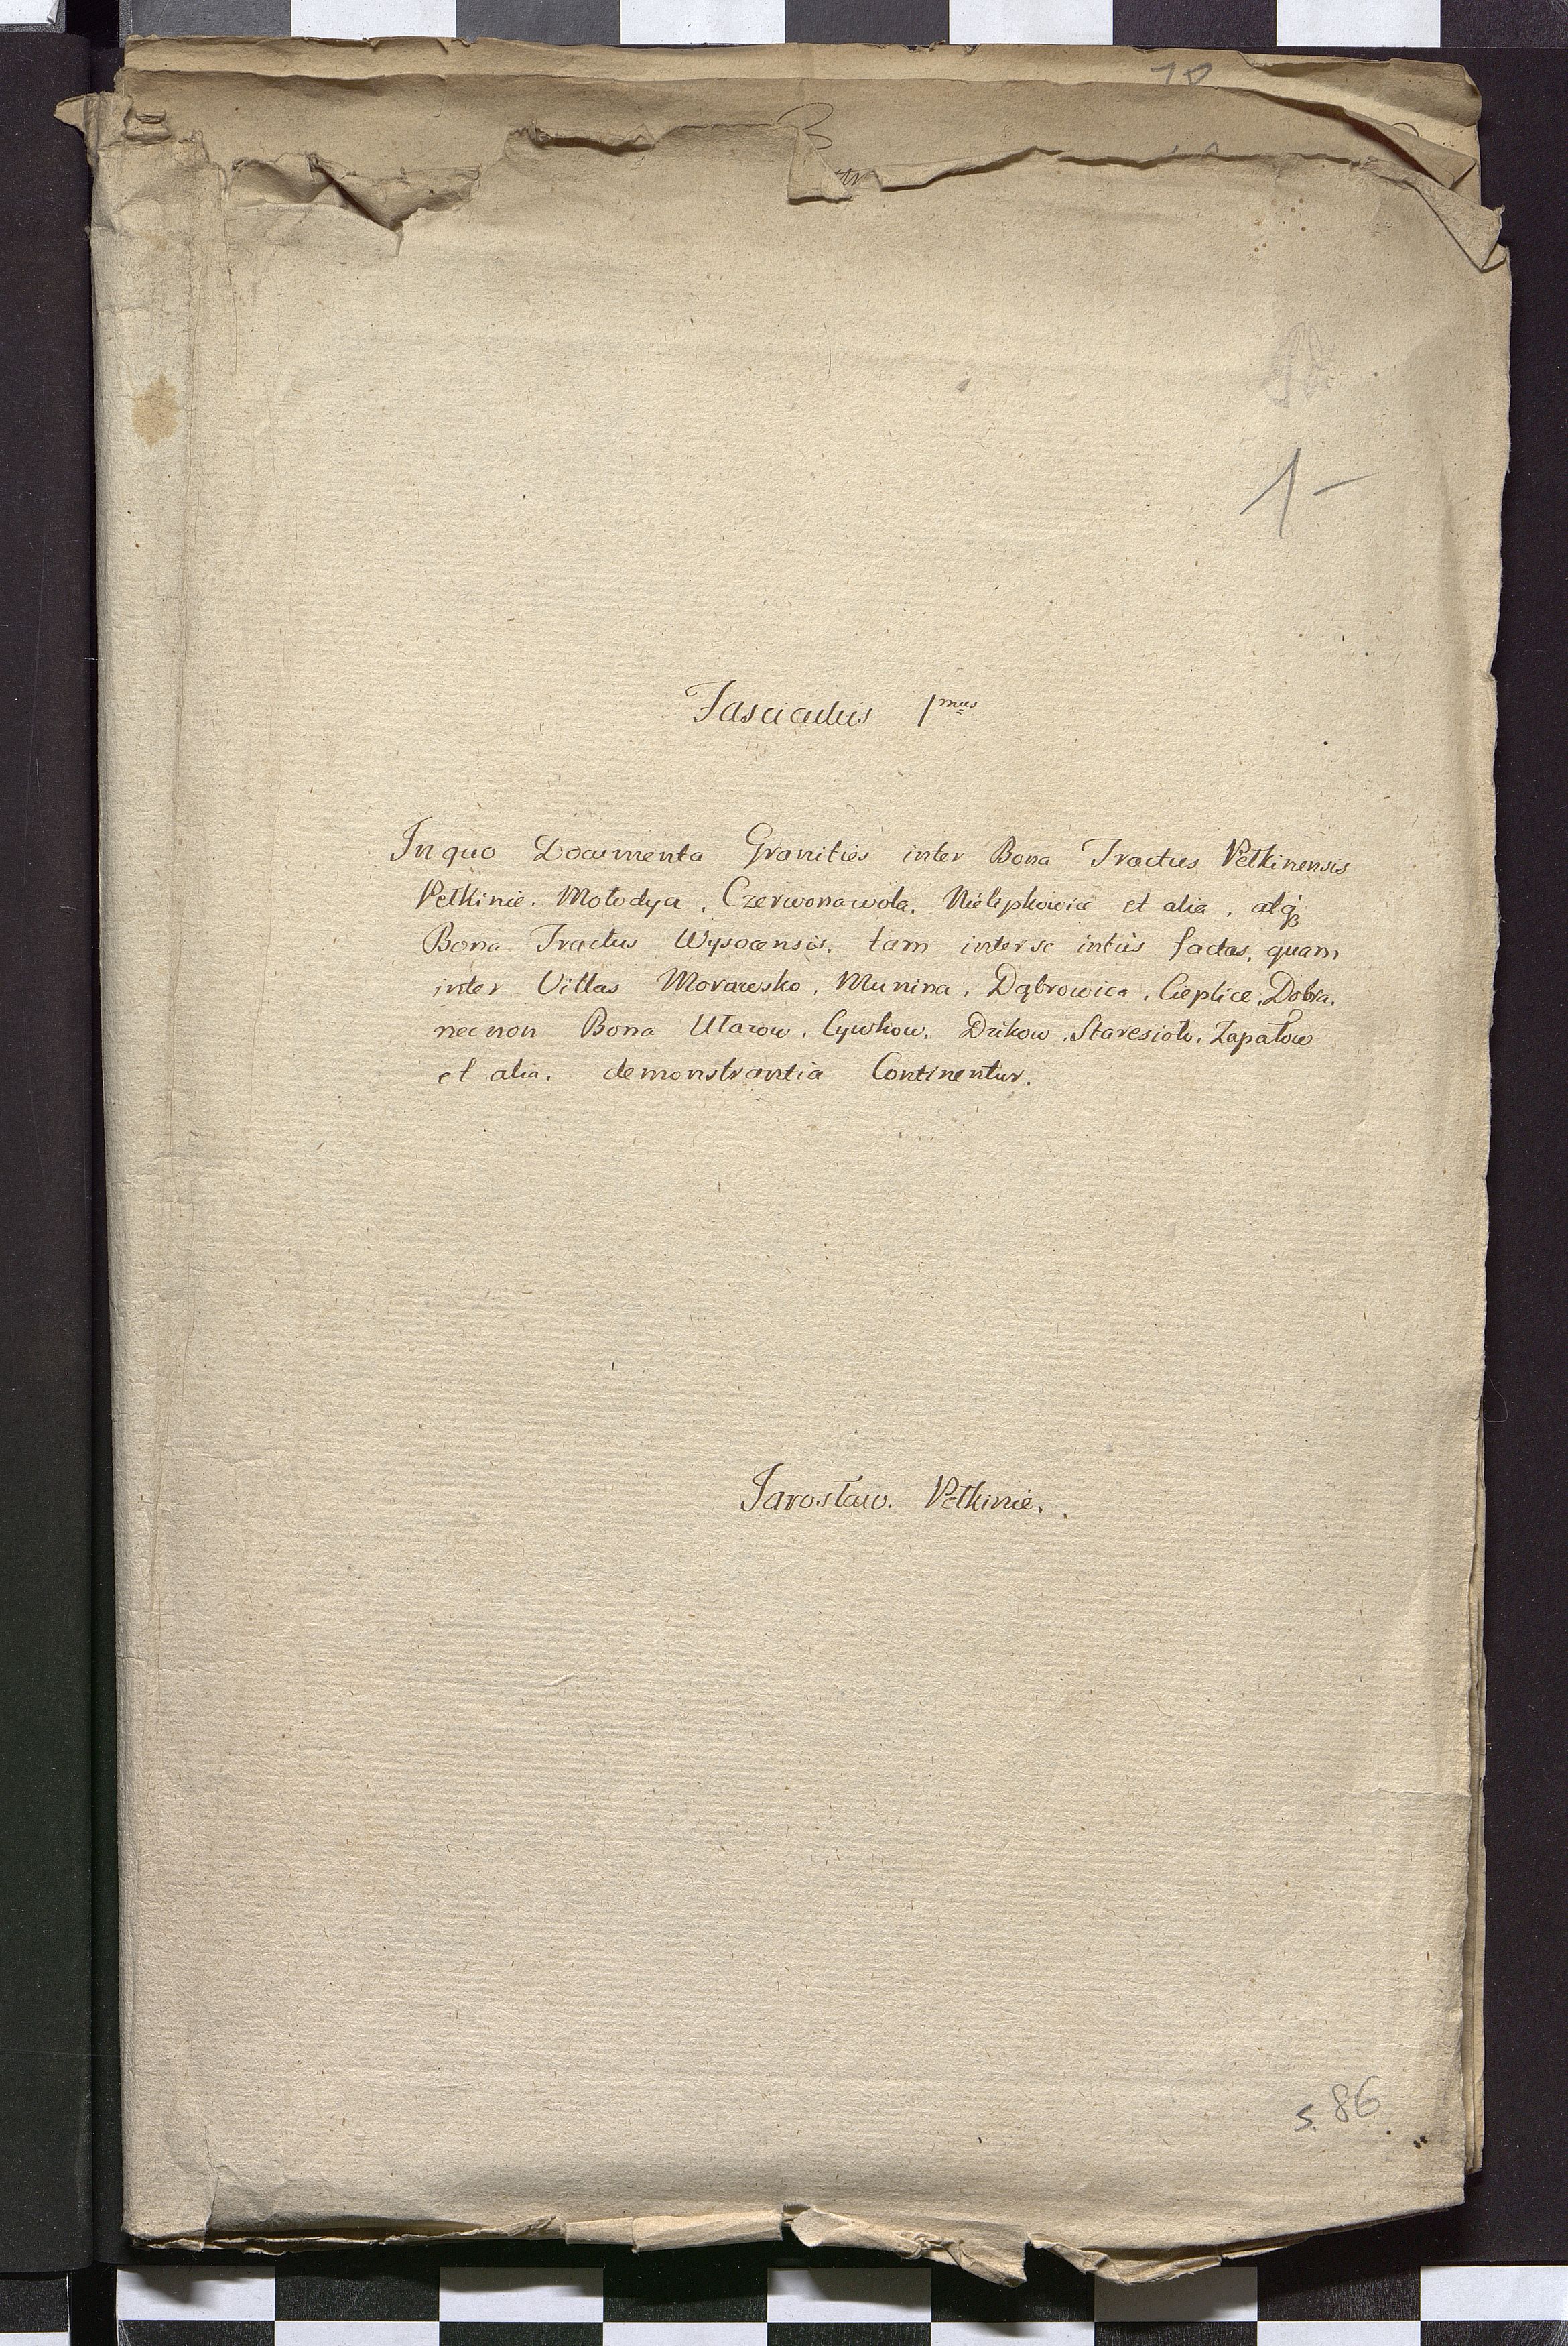 10
1-
Fasciculus 1mus
In quo Documenta Granities inter Bona Tractus Pełkinensis
Pełkinie. Mołodya, Czerwonawola, Nielipkowice et alia, atq
Bona Tractus Wysocensis, tam inter se intus factas, quam
inter Villas Morawsko, Munina, Dąbrowica, Cieplice, Dobra,
necnon Bona Ułazow, Cywkow, Dzikow, Staresioło, Zapałow
et alia. demonstrantia Continentur.
Jarosław. Pełkinie.
s. 86